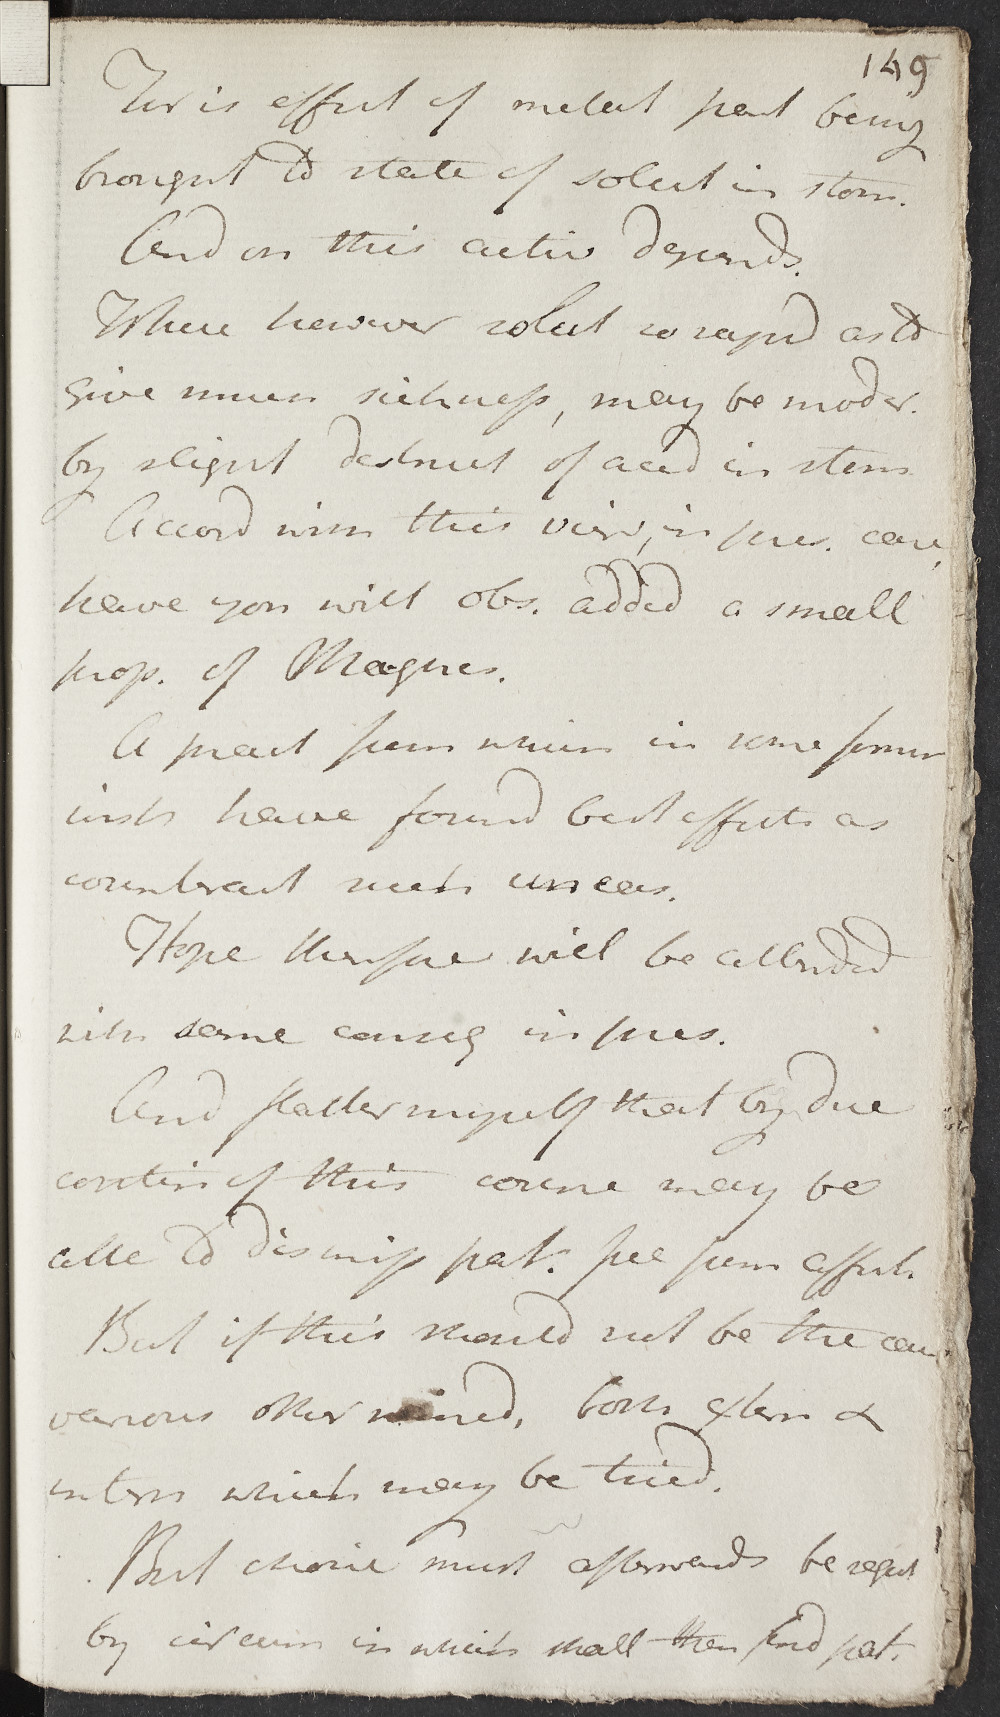 149
This is effect of metal part being
brought to state of solut in stom.
And on this activ depends.
Where however solut so rapid as to
give much sickness, may be moder.
by slight destruct of acid in stom
Accord with this view, in pres. case,
have you will obs. added a small
prop. of Magnes.
A pract from which in some former
insts have found best effects as
counteract such uneas.
Hope therefore will be attended
with same conseq in pres.
And flatter myself that by due
contin of this course may be
able to dismiss pat. free from affect.
But if this should not be the case
various other remed, both extern &
intern which may be tried.
But choice must afterwards be regul
by circum in which shall then find pat.